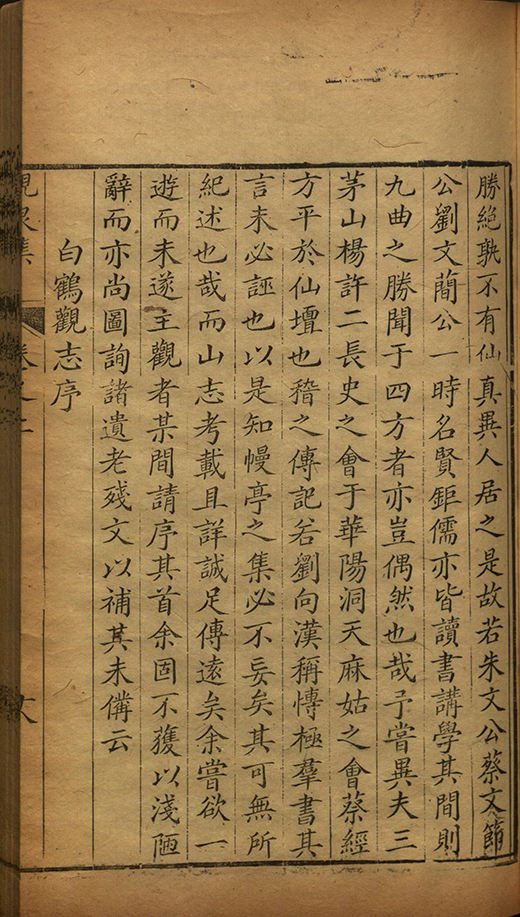 勝絶孰不有仙真異人居之是故若朱文公蔡文節
公劉文簡公一時名賢鉅儒亦皆讀書講學其間則
九曲之勝聞于四方者亦豈偶然也哉予嘗異夫三
茅山楊許二長史之會于華陽洞天麻姑之會蔡經
方平於仙壇也稽之傳記若劉向漢稱愽極羣書其
言未必誣也以是知幔亭之集必不妄矣其可無所
紀述也哉而山志考載且詳誠足傳遠矣余嘗欲一
遊而未遂主觀者某間請序其首余固不獲以淺陋
辭而亦尚圖詢諸遺老殘文以補其未備云
白鶴觀志序
峴泉集
卷之二